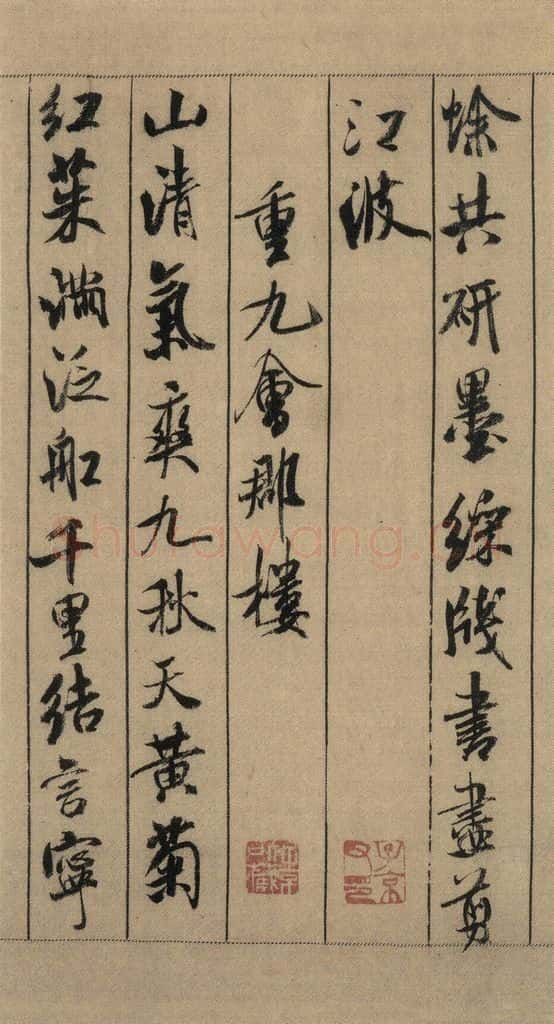 蜍共研墨綵牋書盡剪
江波
重九會郡樓
山清氣爽九秋天黃菊
紅茱滿泛船千里結言寧
shufawang.cn